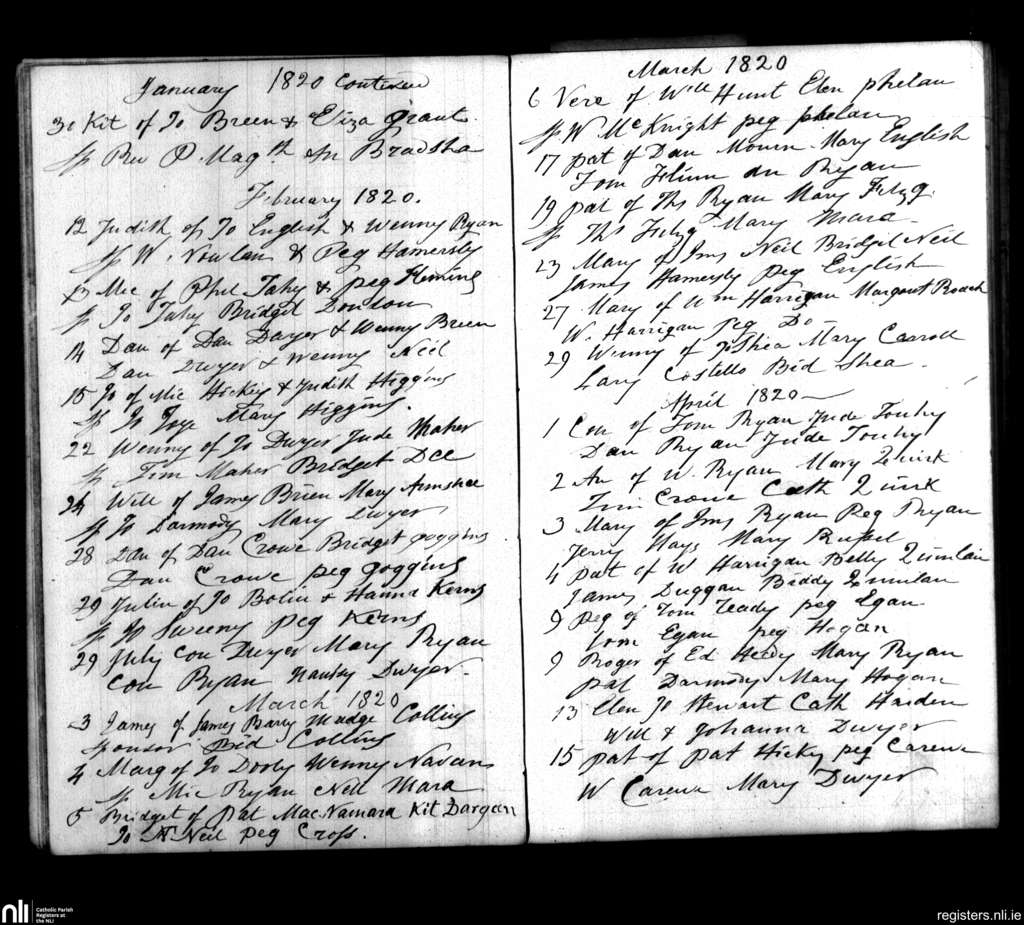 January 1820 Continued
30 Kit of Jo Breen & Eliza Grant
Sp Rev P. Magth An Bradsha
February 1820.
12 Judith of Jo English & Wenny Ryan
Sp W. Nowlan & Peg Hamersly
Mic of Phil Fahy & peg Fleming
Sp Jo Fahy Bridget
14 Dan of Dan Dwyer & Wenny Breen
Dan Dwyer & Wenny Neil
15 Jo of Mic Hickey & Judith Higgins
Sp Jo Mary Higgins.
22 Wenny of Jo Dwyer Jude Maher
Sp Tim Maher Bridget
24 Will of James Brien Mary
Sp Jo Darmody Mary Dwyer
28 Dan of Dan Crowe Bridget goggins
Dan Crowe peg goggins
29 Julia of Jo Bolin & Hanna Kerns
Sp Jo Sweeny peg Kerns
29 July Con Dwyer Mary Ryan
Con Ryan Dwyer
March 1820
3 James of James Barry Madge Collins
Sponsor Bid Collins
4 Marg of Jo Dooly Wenny Navan
Sp Mic Ryan Nell Mara
5 Bridget of Pat MacNamara Kit Dargan
Jo Neil peg Cross.
March 1820
6 Vere of Will Hunt Elen phelan
Sp W McKnight peg phelan
17 pat of Dan Mary English
Tom Flinn An Ryan
19 pat of Ths Ryan Mary Fitzg.
Sp Ths Fitzg Mary Mara
23 Mary of Jms Neil Bridget Neil
James Hamersly peg English
27 Mary of Wm Harrigan Margaret Roach
W. Harrigan peg Do
29 Wenny of Jo Shea Mary Carroll
Lary Costello Bid Shea
April 1820
1 Con of Tom Ryan Jude Touhy
Dan Ryan Jude Touhy
2 An of W. Ryan Mary Quirk
Tim Crowe Cath Quirk
3 Mary of Jms Ryan Peg Ryan
Jerry Hays Mary
4 pat of W Harrigan Betty Quinlan
James Duggan Biddy Quinlan
9 Peg of Tom Teady peg Egan
Tom Egan peg Hogan
9 Roger of Ed Mary Ryan
Pat Darmody Mary Hogan
13 Elen Jo Stewart Cath Harden
Will & Johanna Dwyer
15 pat of pat Hicky peg Carew
W Carew Mary Dwyer
nli
Catholic Parish
Registers at
the NLI
registers.nli.ie